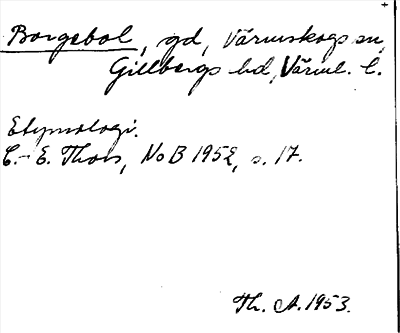 Borgebol, gd, Värmskogs sn,
Gillbergs hd, Värml. l.
Etymologi.
C.-E. Thors, NoB 1952, s. 17.
Th. A. 1953.